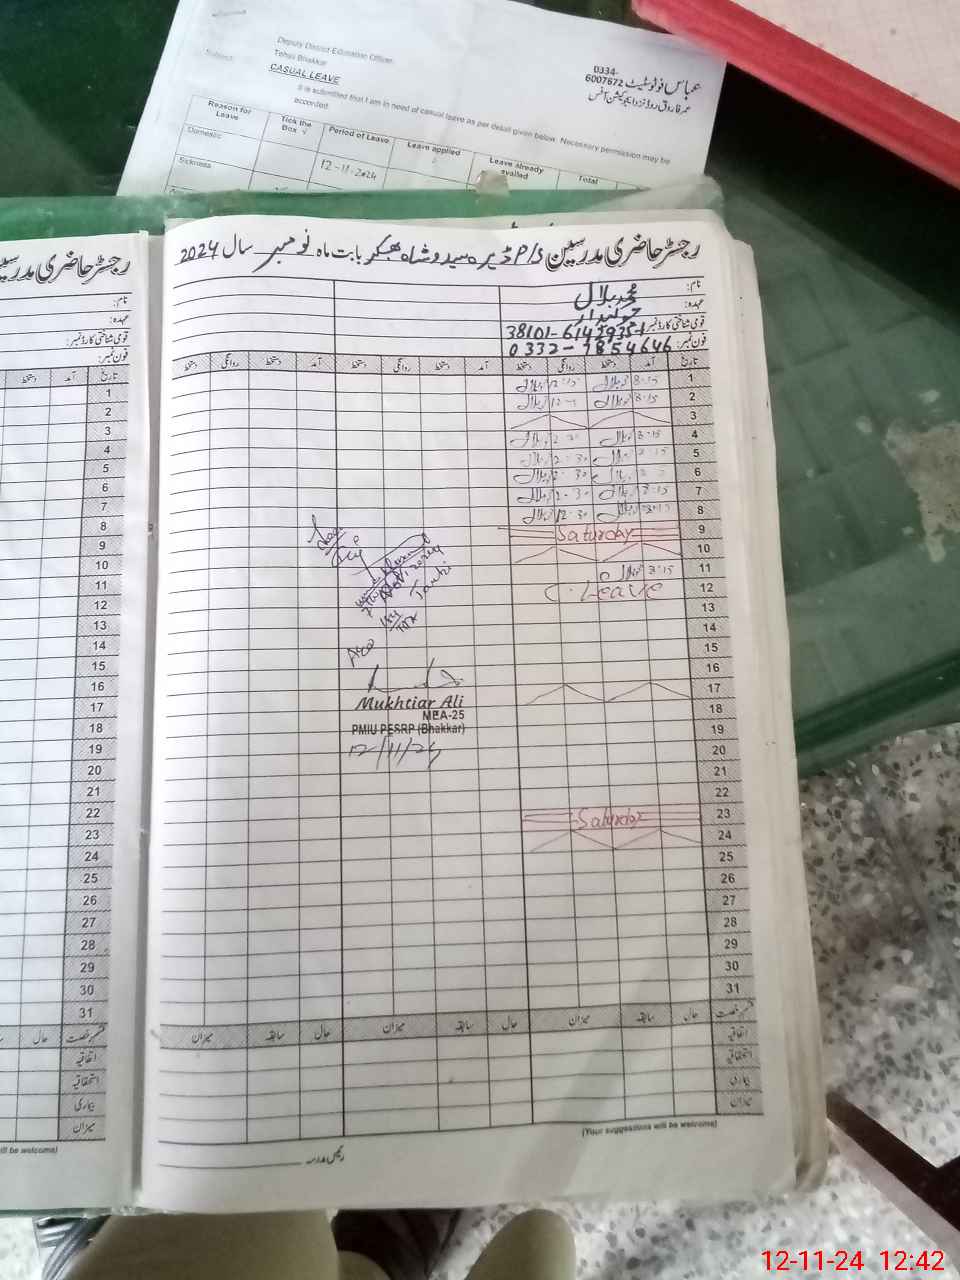 Deputy District Education Officer
Tehsil Bhakkar
Subject:
CASUAL LEAVE
It is submitted that I am in need of casual leave as per detail given below. Necessary permission may be
accorded.
0334-
6007672 عباس فوٹوسٹیٹ
عمر فاروق روڈ نزد ایجوکیشن آفس
Reason for Leave
Tick the Box √
Period of Leave
Leave applied
Leave already availled
Total
Domestic
12-11-2024
Sickness
رجسٹر حاضری مدرسین P/S ڈیرہ سیدو شاہ بھکر بابت ماہ نومبر سال 2024
نام: محمد بلال
عہدہ: چوکیدار
قومی شناختی کارڈ نمبر: 38101-6142935-1
فون نمبر: 0332-7854646
تاریخ آمد دستخط روانگی دستخط آمد دستخط روانگی دستخط آمد دستخط روانگی دستخط
1 8:15 بلال 12:15 بلال
2 8:15 بلال بلال
3
4 8:15 بلال بلال
5 بلال 12:30 بلال
6 بلال 12:30 بلال
7 8:15 بلال 12:30 بلال
8 8:15 بلال 12:30 بلال
9 Saturday
10
11 8:15 بلال
12 C. Leave
13
14
15
16
17
18
19
20
21
22
23 Saturday
24
25
26
27
28
29
30
31
Mukhtiar Ali
MEA-25
PMIU PESRP (Bhakkar)
12/11/24
قسم رخصت حال سابقہ میزان حال سابقہ میزان حال سابقہ میزان
اتفاقیہ
استحقاقیہ
بیماری
میزان
(Your suggestions will be welcome)
رئیس مدرسہ
رجسٹر حاضری مدرسین
نام:
عہدہ:
قومی شناختی کارڈ نمبر:
فون نمبر:
تاریخ آمد دستخط
1
2
3
4
5
6
7
8
9
10
11
12
13
14
15
16
17
18
19
20
21
22
23
24
25
26
27
28
29
30
31
قسم رخصت حال
اتفاقیہ
استحقاقیہ
بیماری
میزان
will be welcome)
12-11-24 12:42